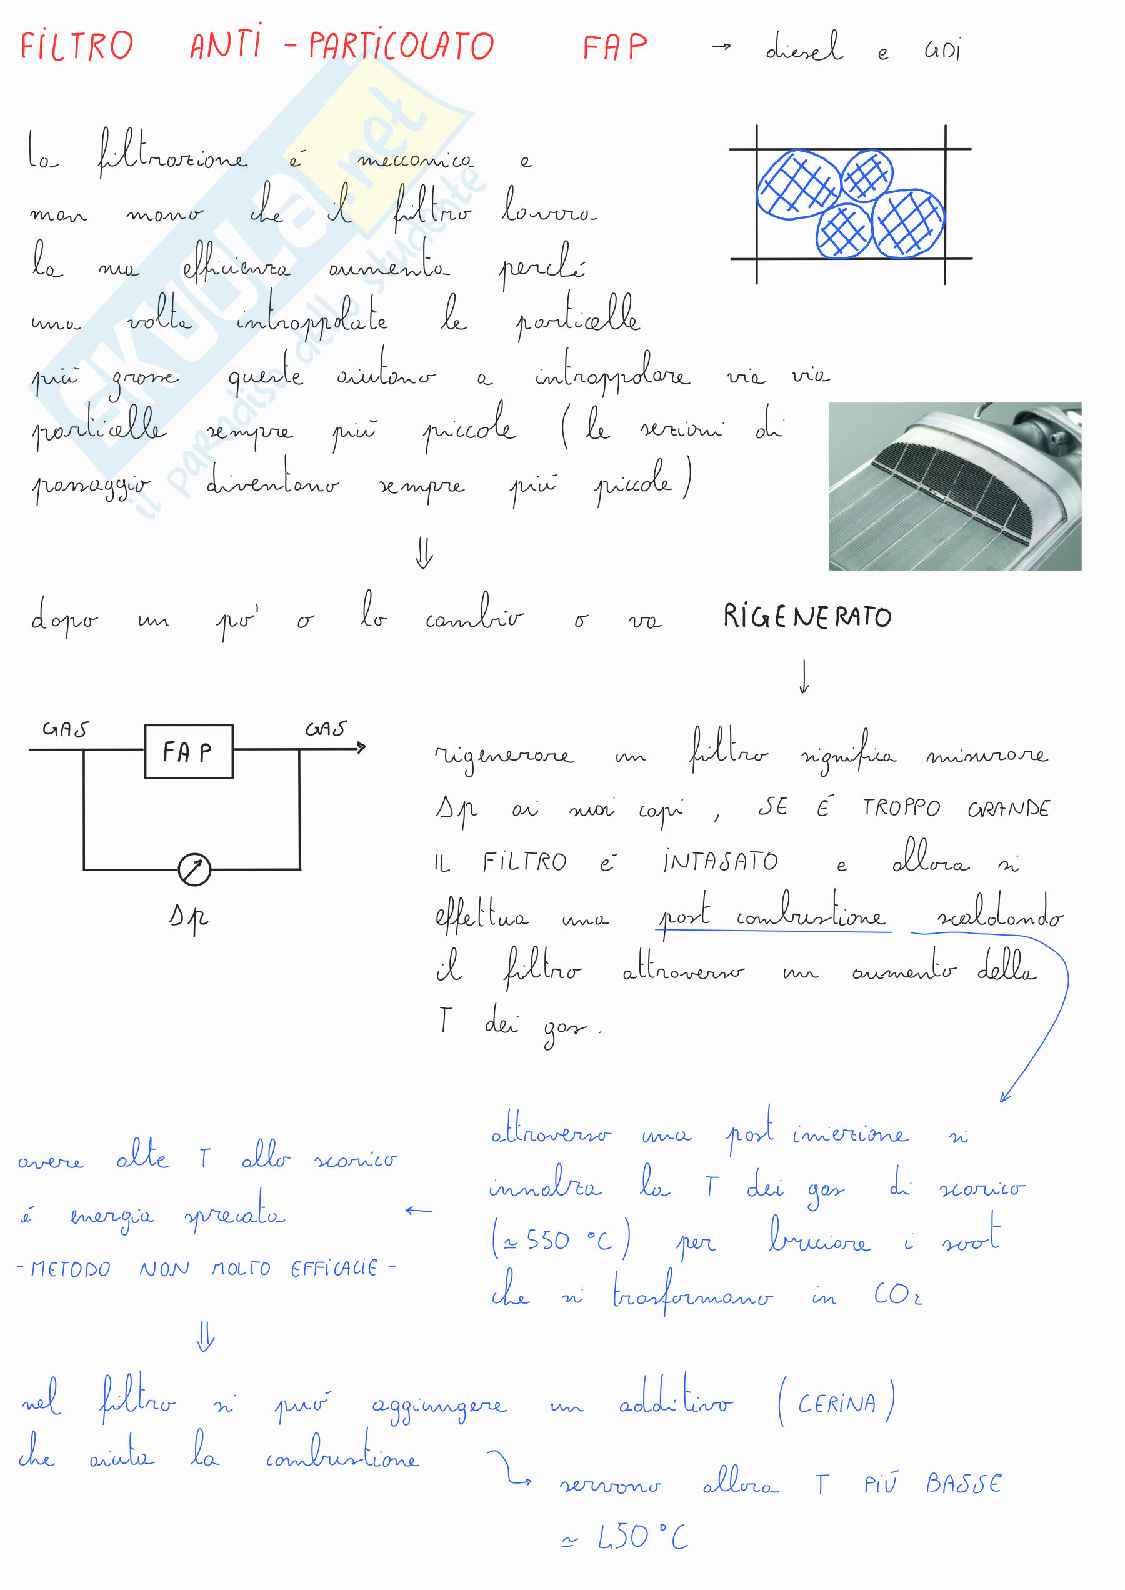 FILTRO ANTI-PARTICOLATO FAP → diesel e GDI
la filtrazione é meccanica e
man mano che il filtro lavora
la sua efficienza aumenta perché
una volta intrappolate le particelle
più grosse queste aiutano a intrappolare via via
particelle sempre più piccole (le sezioni di
passaggio diventano sempre più piccole)
⇓
dopo un po' o lo cambio o va RIGENERATO
↓
GAS FAP GAS
Δp
rigenerare un filtro significa misurare
Δp ai suoi capi, SE É TROPPO GRANDE
IL FILTRO É INTASATO e allora si
effettua una post combustione scaldando
il filtro attraverso un aumento della
T dei gas.
attraverso una post iniezione si
innalza la T dei gas di scarico
(≃ 550 °C) per bruciare i soot
che si trasformano in CO₂
←
avere alte T allo scarico
é energia sprecata
- METODO NON MOLTO EFFICACIE -
⇓
nel filtro si può aggiungere un additivo (CERINA)
che aiuta la combustione
servono allora T PIÚ BASSE
≃ 450 °C
SKUOLA.net
il paradiso dello studente